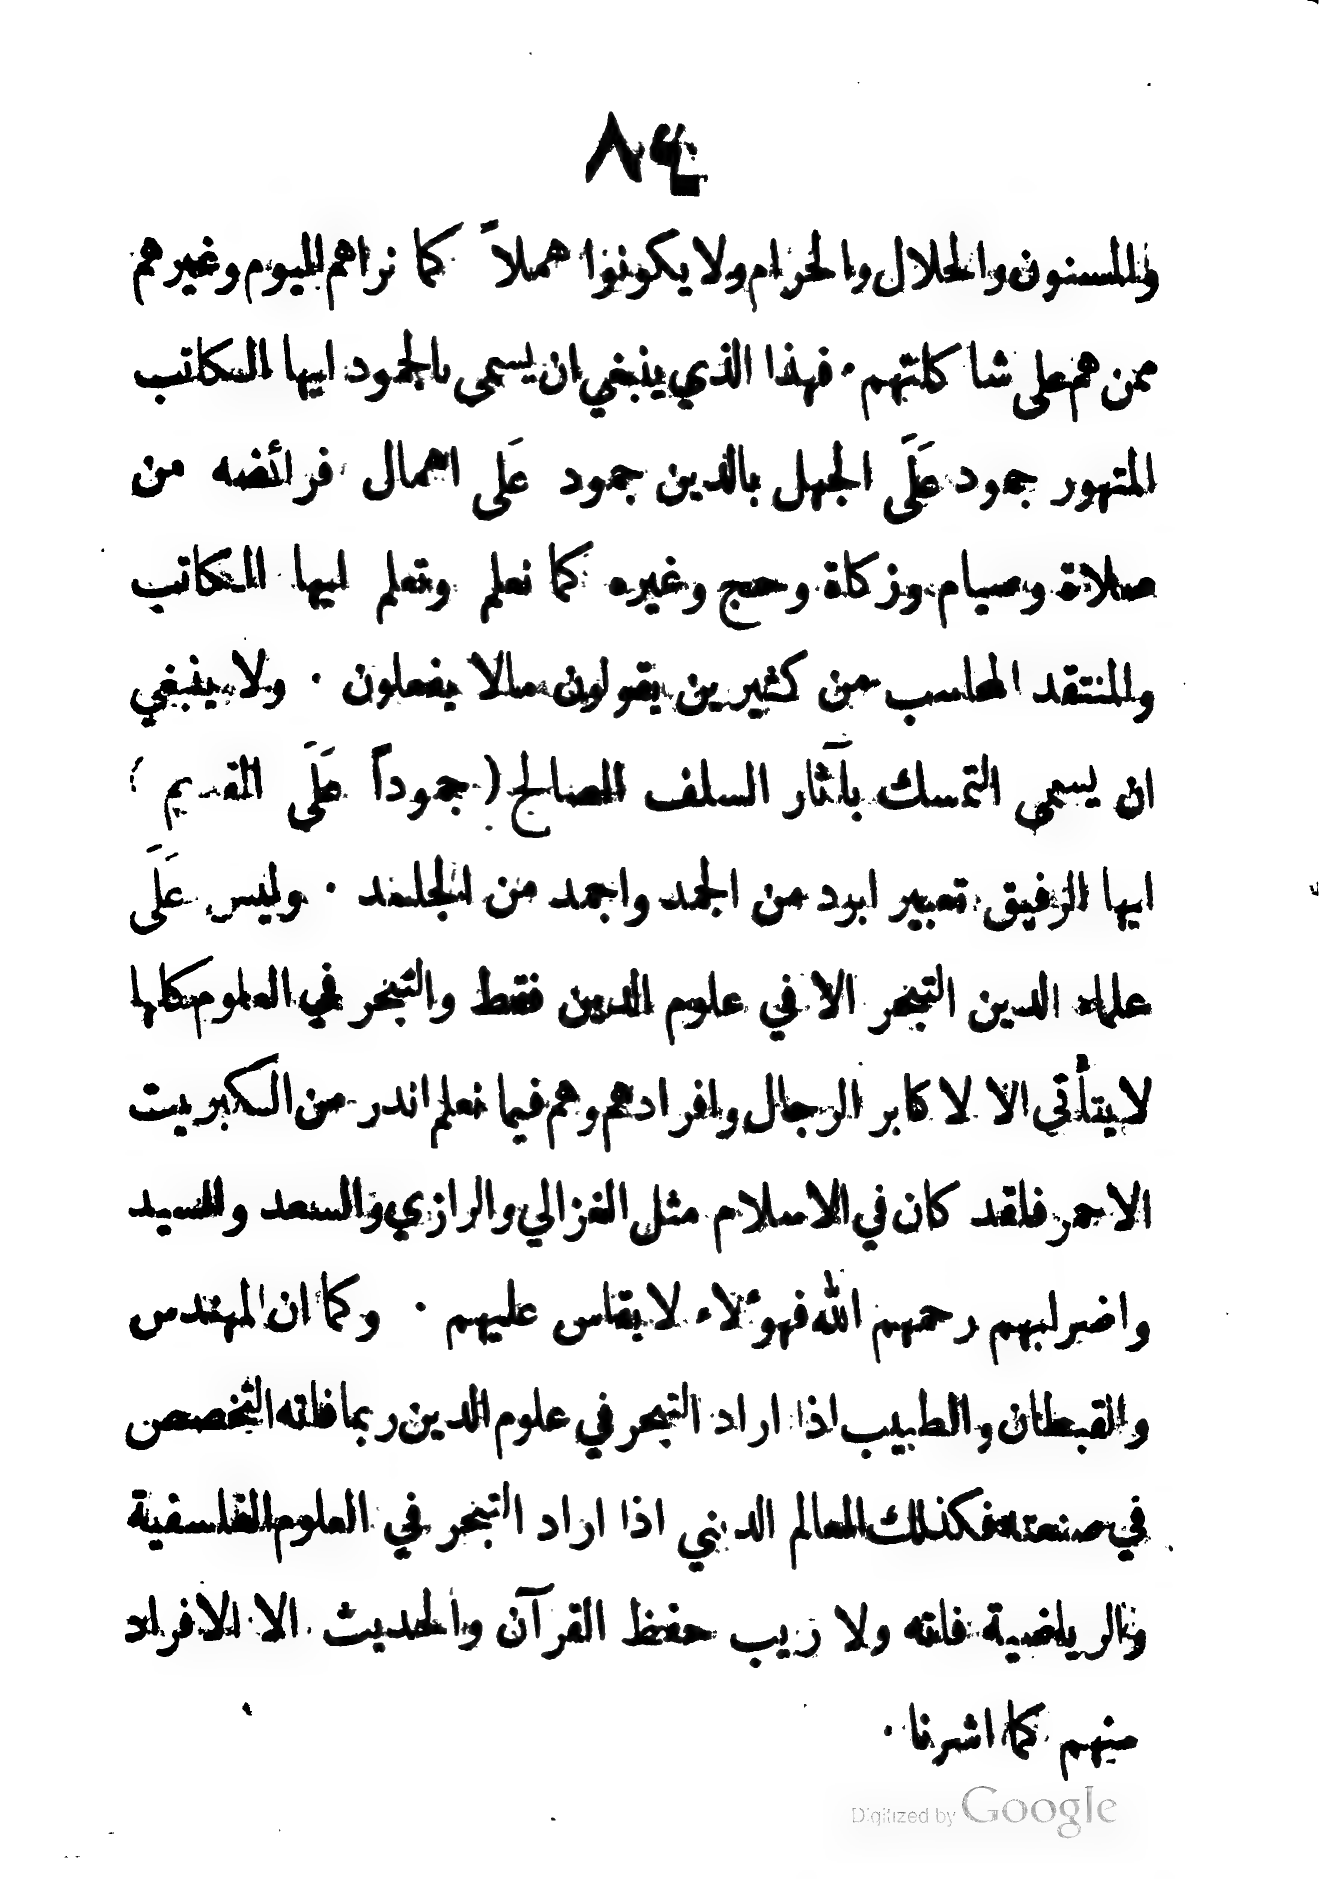 والمسنون والحلال والحرام ولا يكونوا هملاً كما نراهم اليوم وغيرهم
ممن هم على شاكلتهم · فهذا الذي ينبغي ان يسمى بالجمود ايها الكاتب
المتهور جمود عَلَى الجهل بالدين جمود عَلى اهمال فرائضه من
صلاة وصيام وزكاة وحج وغيره كما نعلم وتعلم ايها الكاتب
والمنتقد المحاسب من كثيرين يقولون مالا يفعلون · ولا ينبغي
ان يسمى التمسك بآثار السلف الصالح ( جموداً عَلَى القديم )
ايها الرفيق تعبير ابرد من الجمد واجمد من الجلمد · وليس عَلَى
علماء الدين التبحر الا في علوم الدين فقط والتبحر في العلوم كلها
لا يتأتى الا لاكابر الرجال وافرادهم وهم فيما نعلم اندر من الكبريت
الاحمر فلقد كان في الاسلام مثل الغزالي والرازي والسعد والسيد
واضرابهم رحمهم الله فهؤلاء لا يقاس عليهم · وكما ان المهندس
والقبطان والطبيب اذا اراد التبحر في علوم الدين ربما فاته التخصص
في صنعته فكذلك العالم الديني اذا اراد التبحر في العلوم الفلسفية
والرياضية فاته ولا ريب حفظ القرآن والحديث الا الافراد
منهم كما اشرنا ·
Digitized by Google